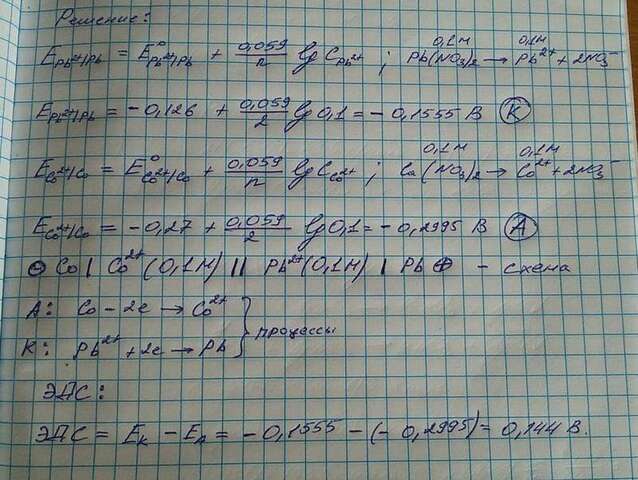 Решение:
E Pb²⁺/Pb = E⁰ Pb²⁺/Pb + 0,059/n lg C Pb²⁺ ; 0,1н Pb(NO₃)₂ → 0,1н Pb²⁺ + 2NO₃⁻
E Pb²⁺/Pb = -0,126 + 0,059/2 lg 0,1 = -0,1555 В (К)
E Co²⁺/Co = E⁰ Co²⁺/Co + 0,059/n lg C Co²⁺ ; 0,1н Co(NO₃)₂ → 0,1н Co²⁺ + 2NO₃⁻
E Co²⁺/Co = -0,27 + 0,059/2 lg 0,1 = -0,2995 В (А)
⊖ Co | Co²⁺ (0,1н) || Pb²⁺ (0,1н) | Pb ⊕ - схема
А: Co - 2e → Co²⁺
} процессы
К: Pb²⁺ + 2e → Pb
ЭДС:
ЭДС = Eк - Eа = -0,1555 - (-0,2995) = 0,144 В.